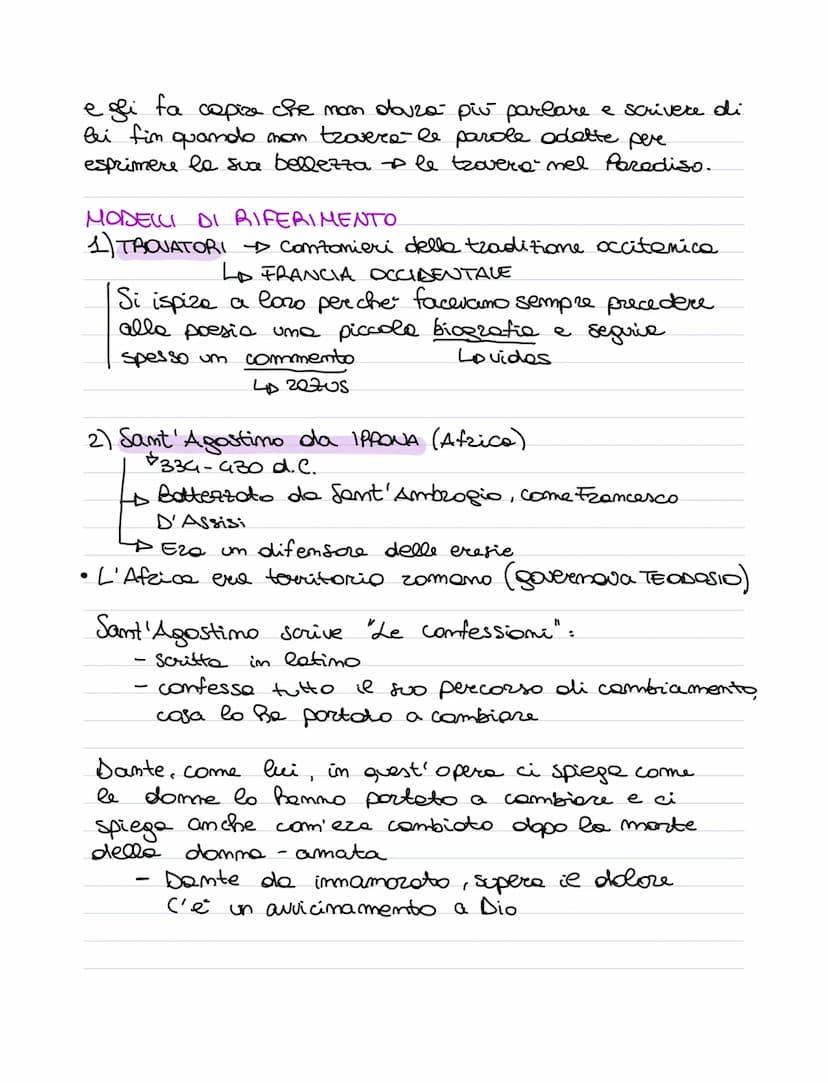 e gli fa capire che non dovrà più parlare e scrivere di
lei fin quando non troverà le parole adatte per
esprimere la sua bellezza → le troverà nel Paradiso.
MODELLI DI RIFERIMENTO
1) TROVATORI → Cantonieri della tradizione occitanica
↳ FRANCIA OCCIDENTALE
Si ispira a loro perché facevano sempre precedere
alla poesia una piccola biografia e seguiva
spesso un commento ↳ vidas
↳ razos
2) Sant'Agostino da IPPONA (Africa)
↓ 334-430 d.C.
↳ Battezzato da Sant'Ambrogio, come Francesco
D'Assisi
↳ Era un difensore delle eresie
• L'Africa era territorio romano (governava TEODOSIO)
Sant'Agostino scrive "Le confessioni":
- scritta in latino
- confessa tutto il suo percorso di cambiamento,
cosa lo ha portato a cambiare
Dante, come lui, in quest'opera ci spiega come
le donne lo hanno portato a cambiare e ci
spiega anche com'era cambiato dopo la morte
della donna-amata
- Dante da innamorato, supera il dolore
C'è un avvicinamento a Dio